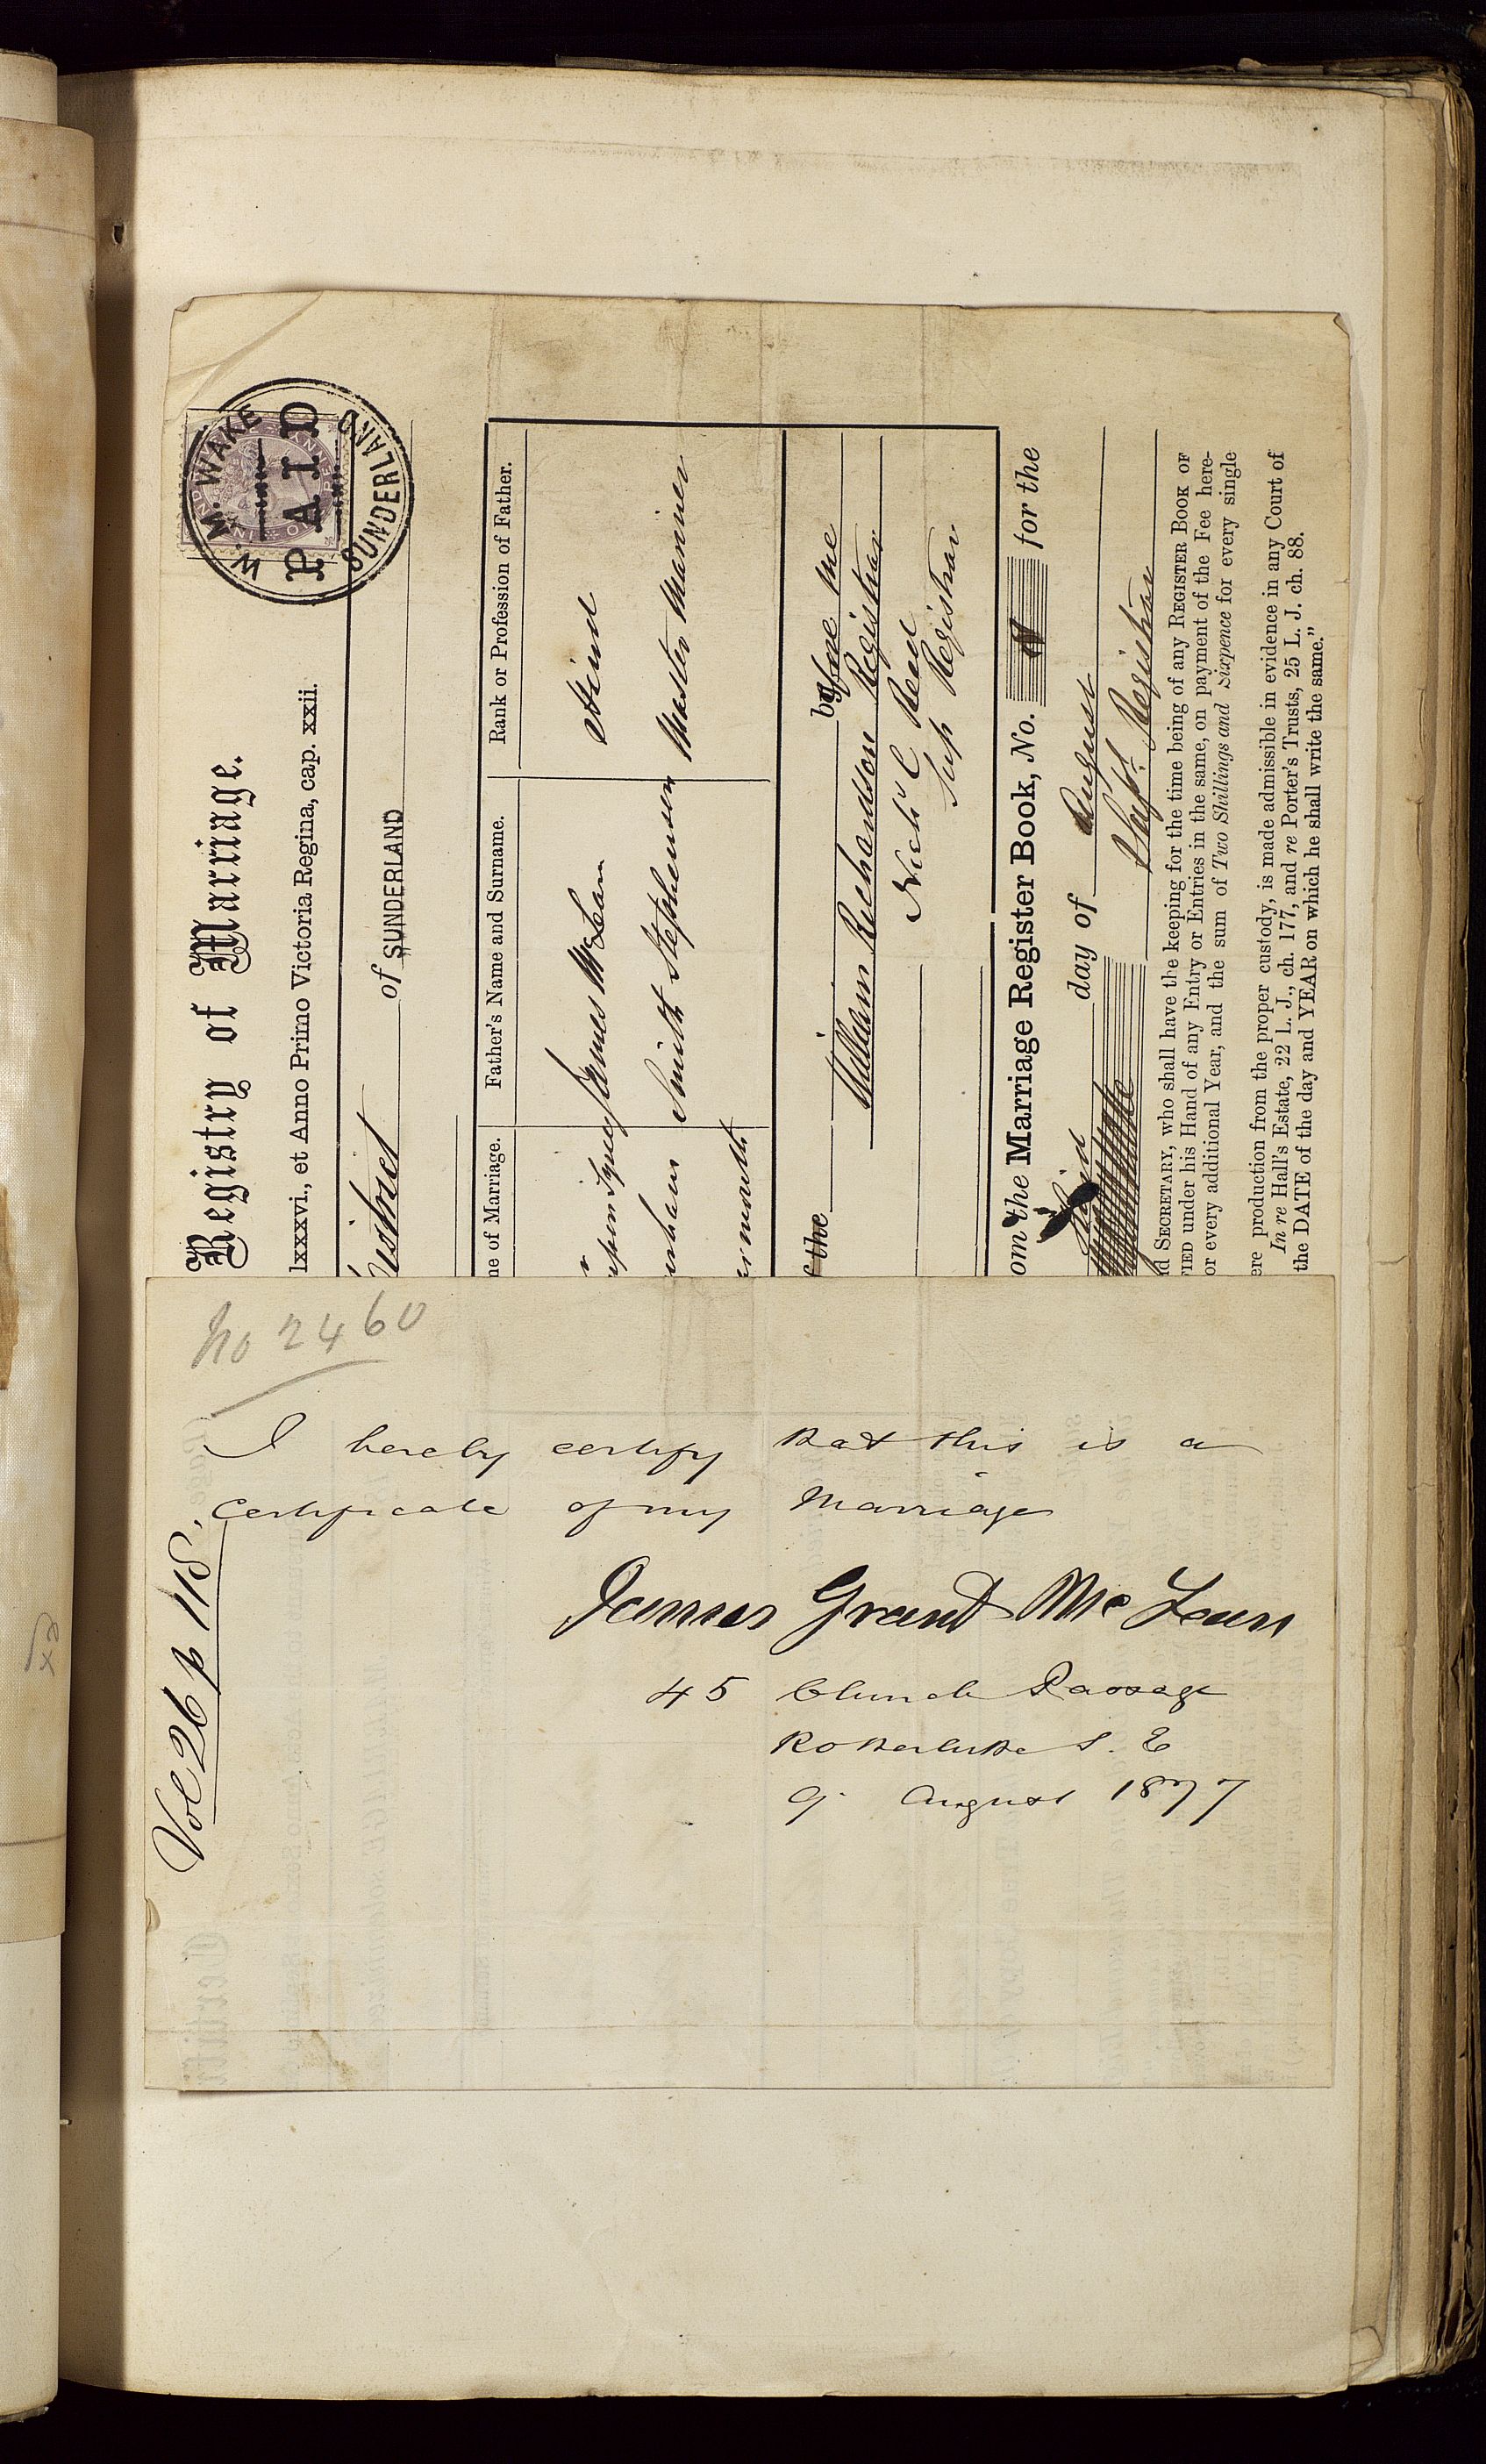 Registry of Marriage.
lxxxvi., et Anno Primo Victoria Regina, cap. xxii.
District of SUNDERLAND
W. M. WAKE
PAID
SUNDERLAND
ne of Marriage.
Father's Name and Surname.
Rank or Profession of Father.
James McLean
Hind
Smith Stephenson
Master Mariner
ermouth
f the before me
William Richardson Registrar
Nichs C Reed
Sup Registrar
om the Marriage Register Book, No. for the
Third day of August
Supt. Registrar
d SECRETARY, who shall have the keeping for the time being of any REGISTER BOOK OF
FIED under his Hand of any Entry or Entries in the same, on payment of the Fee here-
or every additional Year, and the sum of Two Shillings and Sixpence for every single
ere production from the proper custody, is made admissible in evidence in any Court of
In re Hall's Estate, 22 L. J., ch. 177, and re Porter's Trusts, 25 L. J. ch. 88.
the DATE of the day and YEAR on which he shall write the same."
No 2460
I hereby certify that this is a
Certificate of my Marriage
James Grant McLean
45 Church Passage
Rotherhithe S. E
9. August 1877
Vol 26 p 118